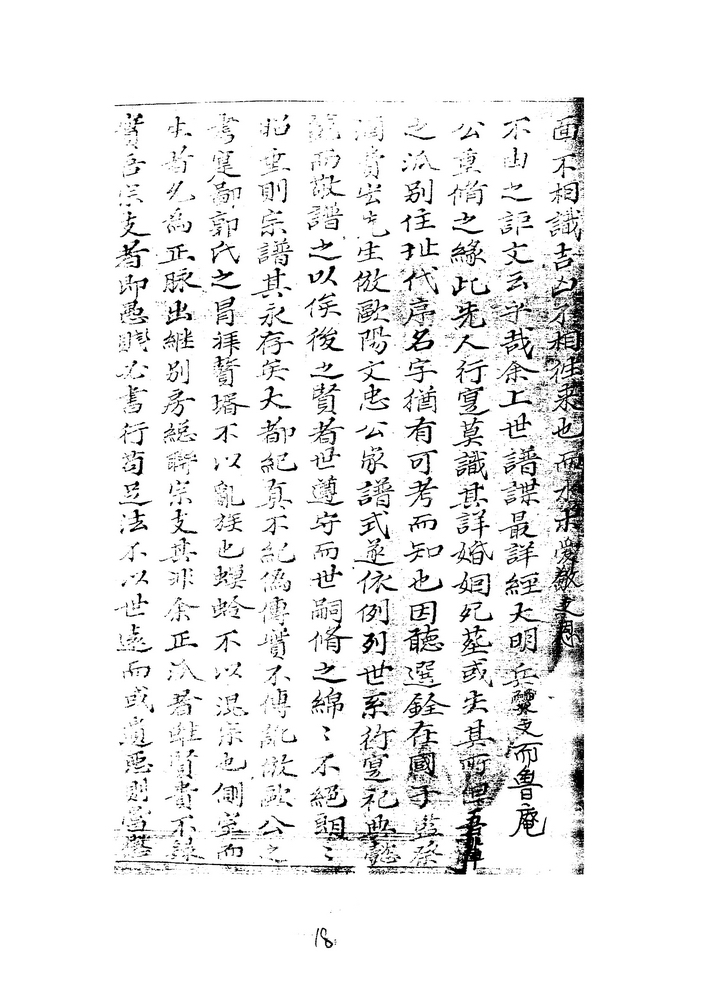 面不相識吉凶不相徃来也而求愛敬之恩
不由之詎文云乎哉余上世譜諜最詳經大明兵燹之而魯庵
公重脩之緣此先人行寔莫識其詳婚姻兆墓或失其所但吾
之派别住址代序名字猶有可考而知也因聽選銓在國子監發
潤費宏先生倣歐陽文忠公家譜式遂依例列世系行寔祀典懿
範而敬譜之以俟後之賢者世遵守而世嗣脩之綿〻不絕
昭垂則宗譜其永存矣大都紀真不紀偽傳實不傳訛倣歐公之
書寔鄙郭氏之冒拜贅壻不以亂族也螟蛉不以混宗也側室而
生者凡為正脉出継别房総聨宗支其非余正派者雖賢貴不録
實吾宗支者即愚賤必書行苟足法不以世遠而或遺惡則當懲
18